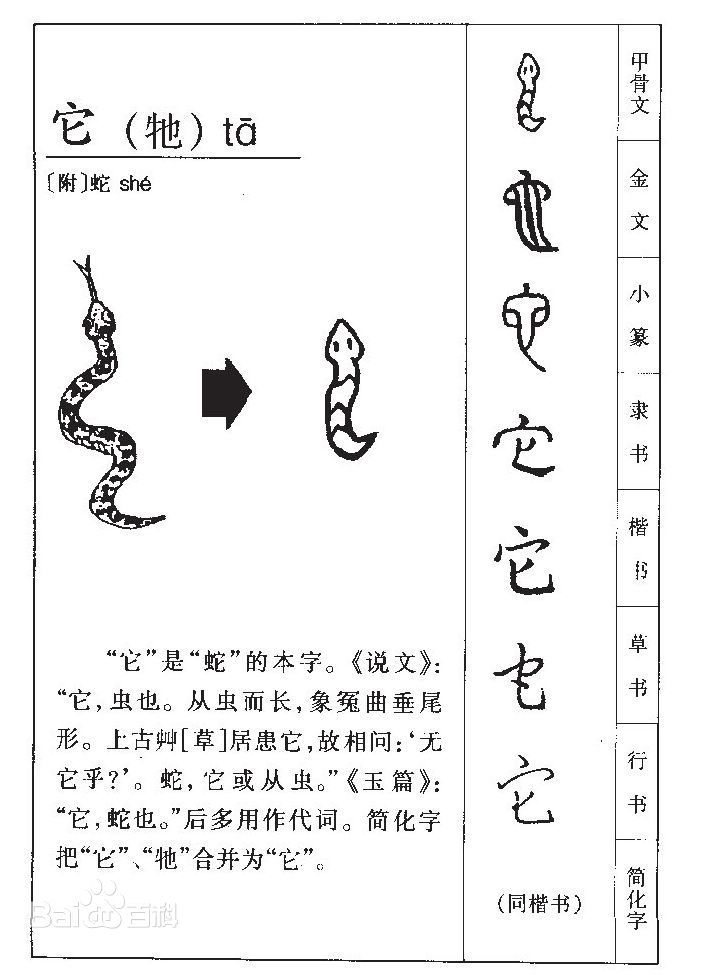 它（牠）tā
〔附〕蛇 shé
“它”是“蛇”的本字。《说文》：
“它，虫也。从虫而长，象冤曲垂尾
形。上古艸[草]居患它，故相问：‘无
它乎？’。蛇，它或从虫。”《玉篇》：
“它，蛇也。”后多用作代词。简化字
把“它”、“牠”合并为“它”。
甲骨文
金文
小篆
它
隶书
它
楷书
它
草书
它
行书
（同楷书）
简化字
Baidu百科